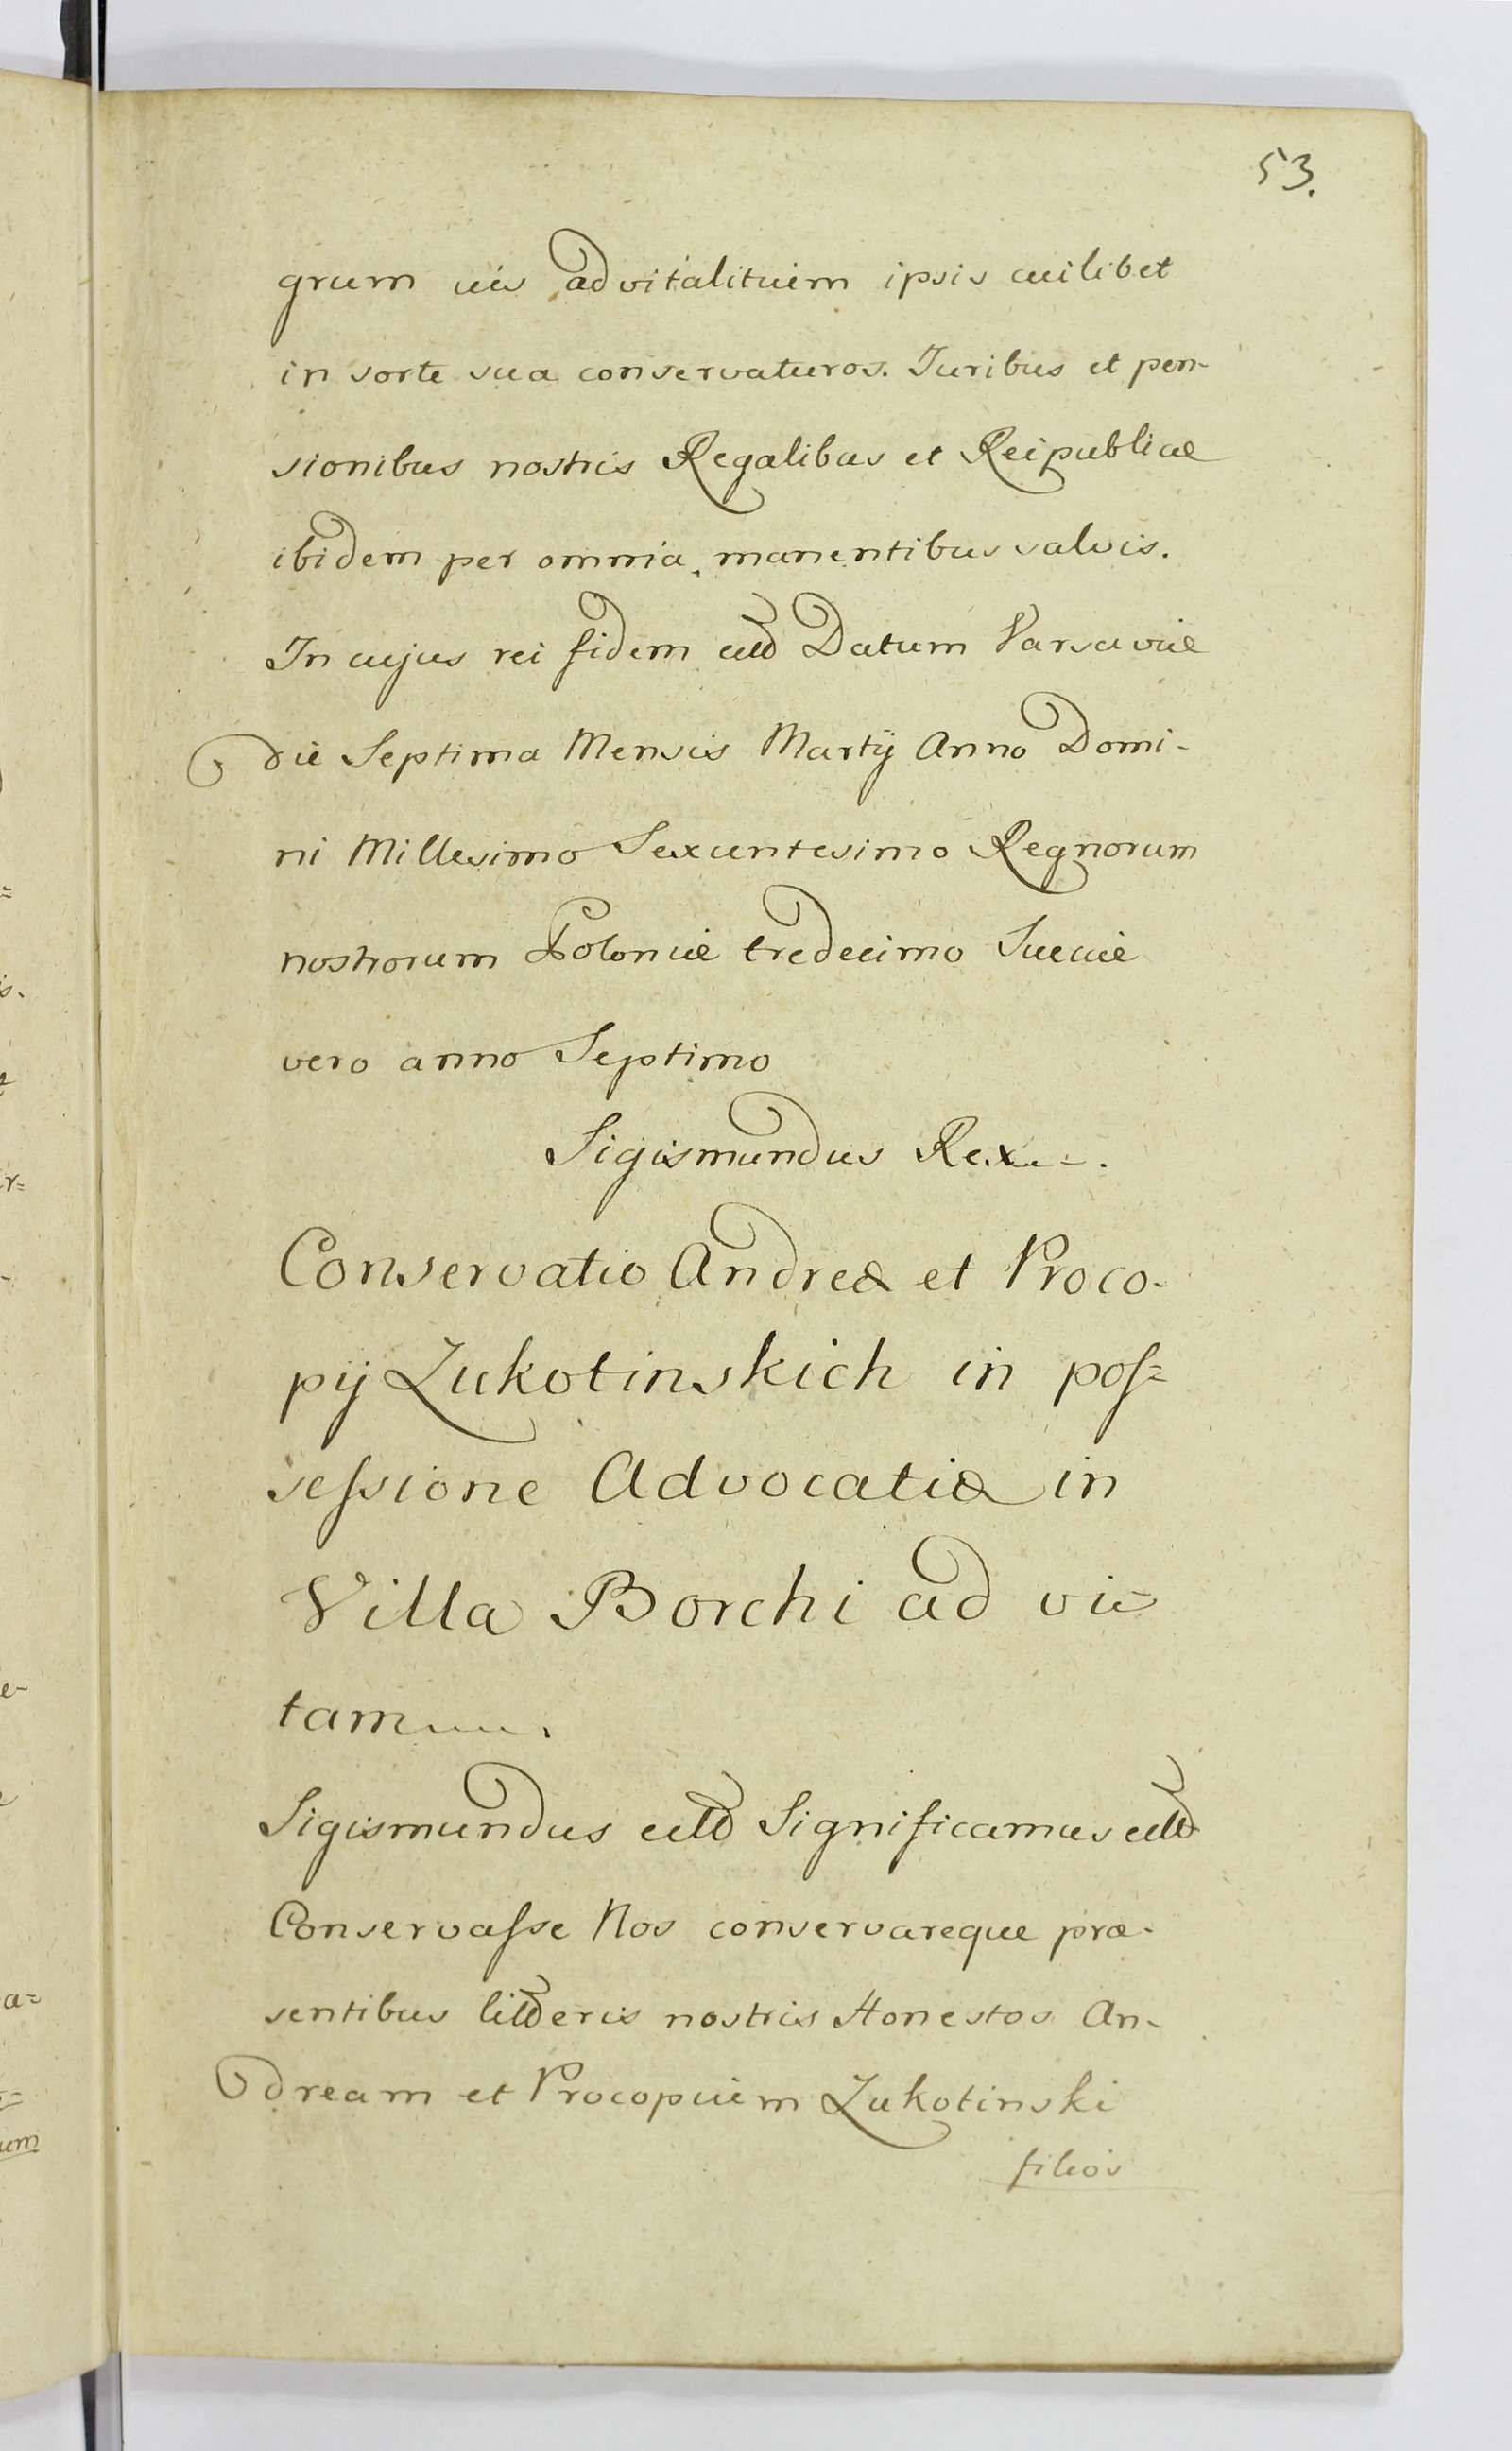 53.
grum jus advitalitium ipsis cuilibet
in sorte sua conservaturos. Juribus et pen-
sionibus nostris Regalibus et Reipublicæ
ibidem per omnia, manentibus salvis.
In cujus rei fidem etta Datum Varsaviæ
die Septima Mensis Martij Anno Domi-
ni Millesimo Sexcentesimo Regnorum
nostrorum Poloniæ tredecimo Sueciæ
vero anno Septimo
Sigismundus Rex
Conservatio Andreæ et Proco-
pij Zukotinskich in pos=
sessione Advocatiæ in
Villa Borchi ad vi=
tam
Sigismundus etta Significamus etta
Conservasse Nos conservareque præ-
sentibus litteris nostris Honestos An-
dream et Procopium Zukotinski
filios
=
is.
r=
-
e-
a=
um